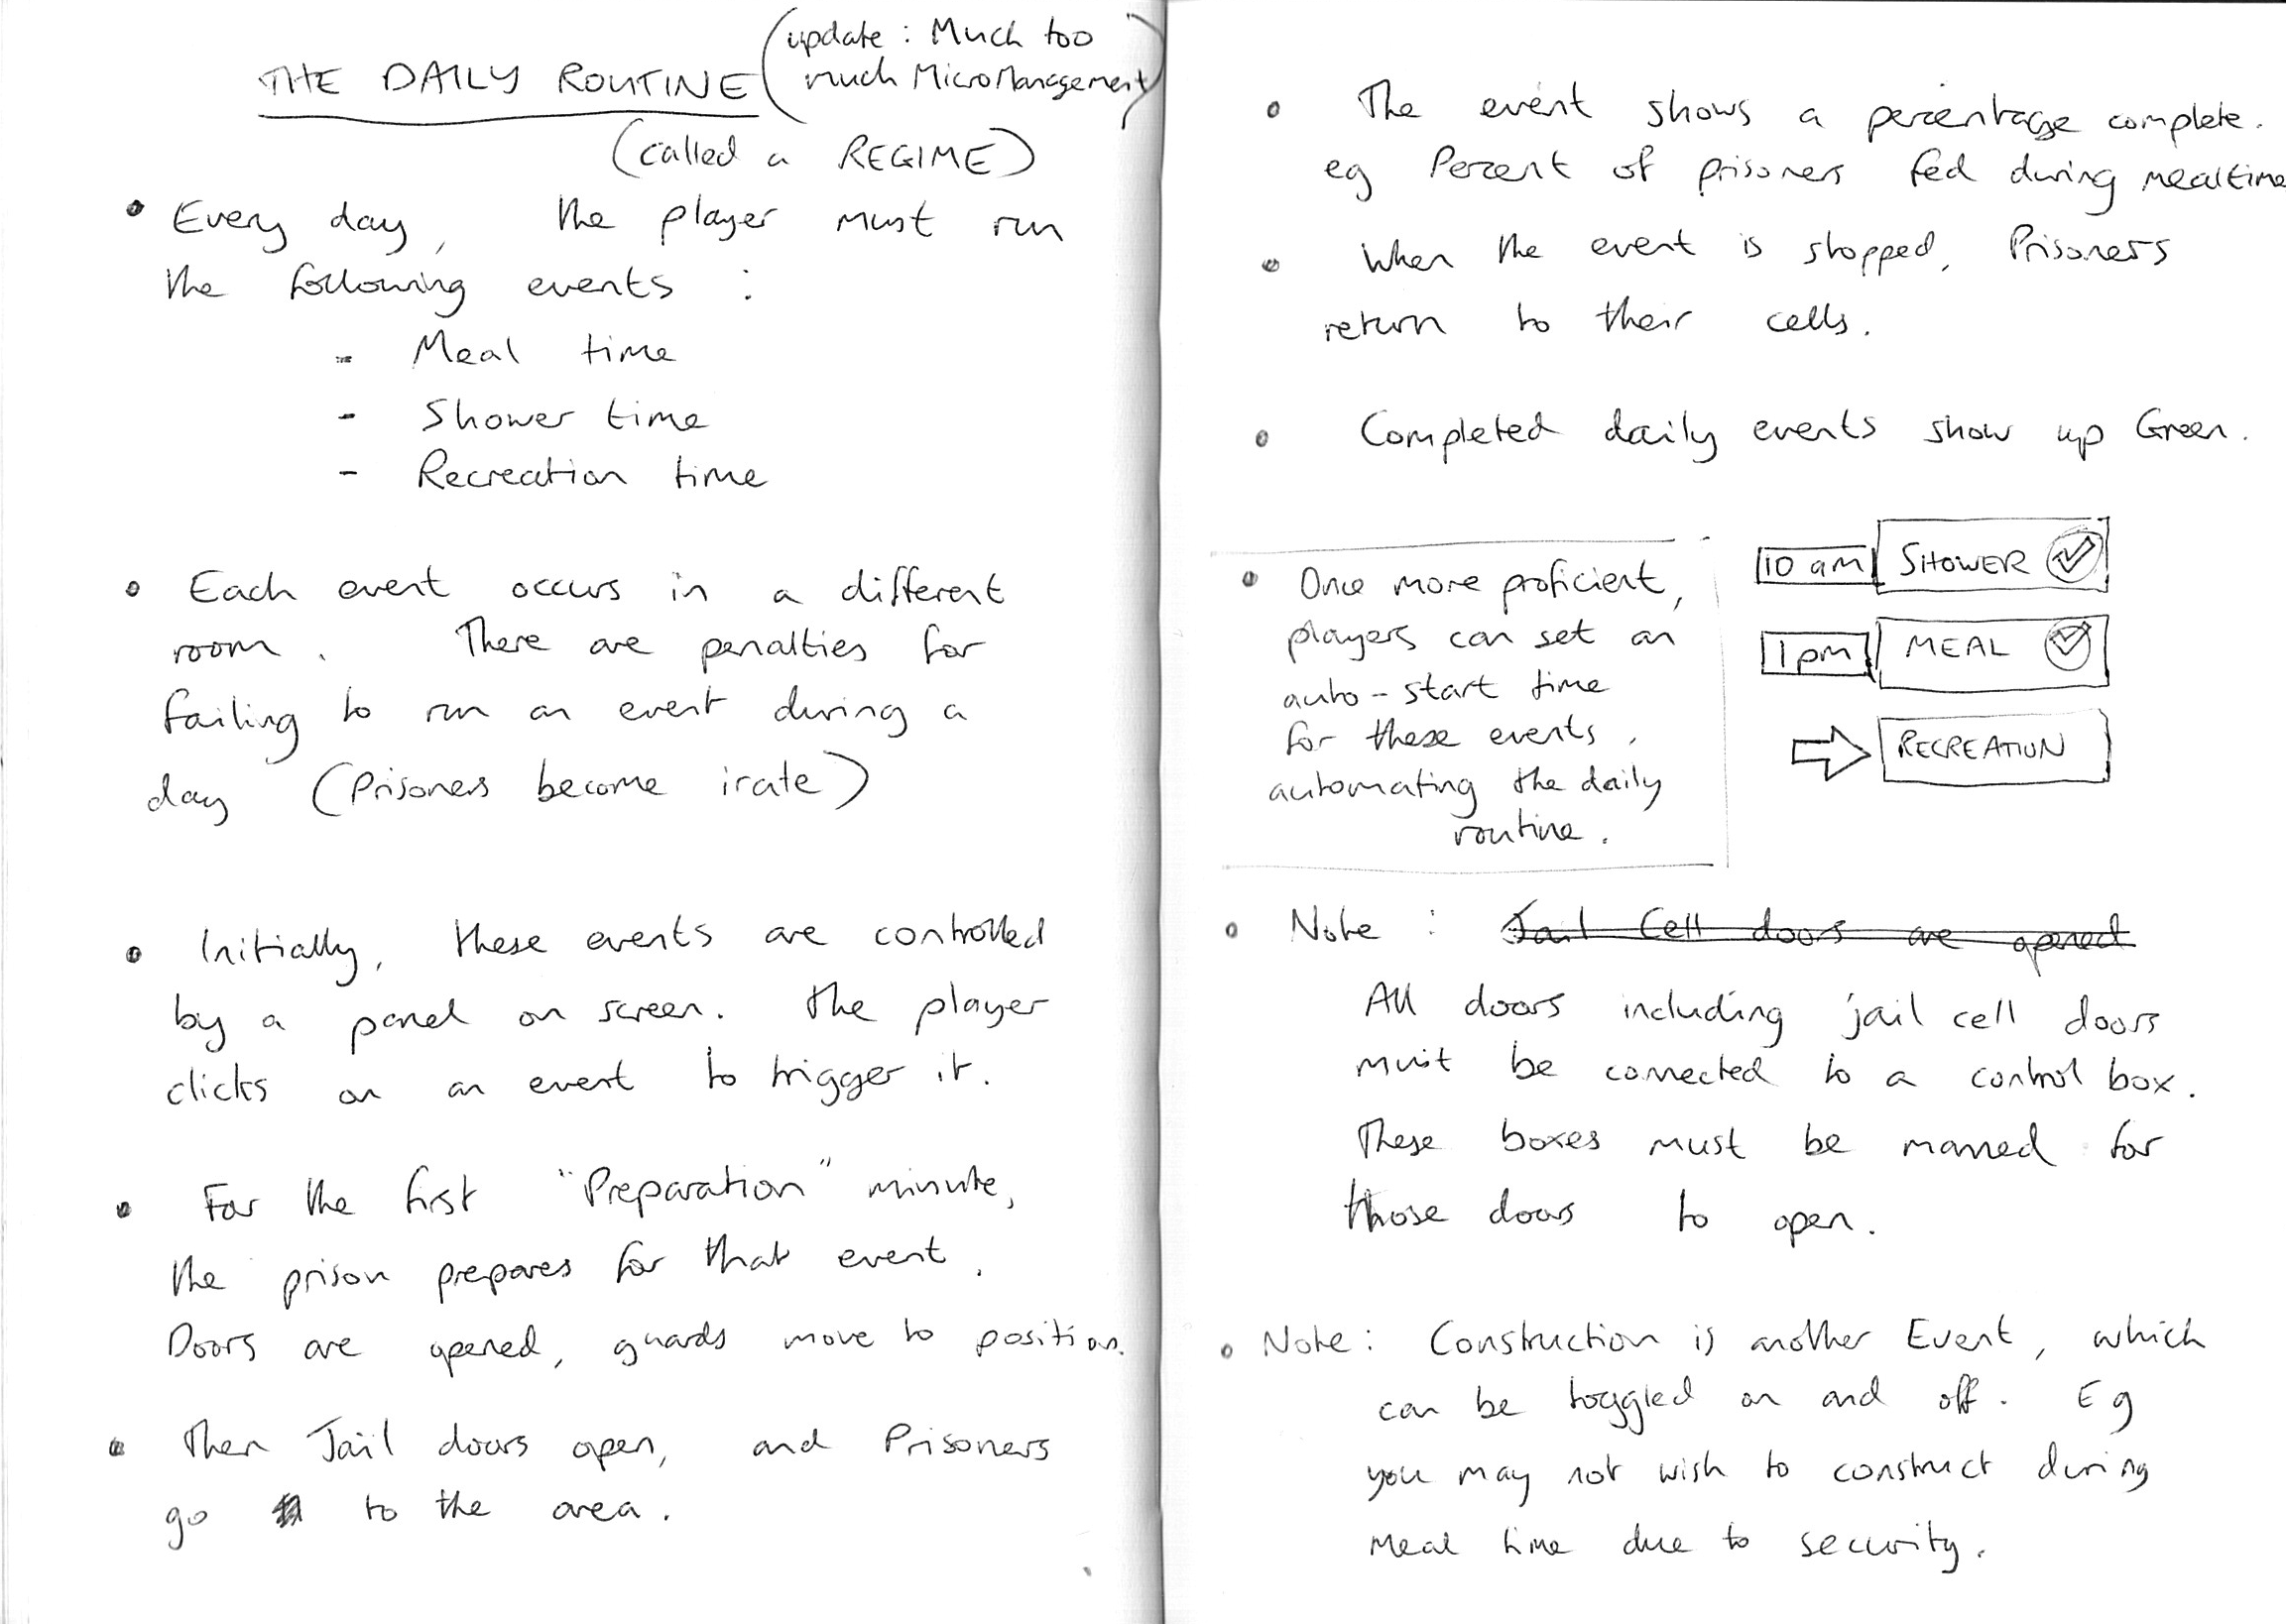 THE DAILY ROUTINE (update : Much too
much MicroManagement)
(called a REGIME)
• Every day, the player must run
the following events :
- Meal time
- Shower time
- Recreation time
• Each event occurs in a different
room. There are penalties for
failing to run an event during a
day (Prisoners become irate)
• Initially, these events are controlled
by a panel on screen. The player
clicks on an event to trigger it.
• For the first "Preparation" minute,
the prison prepares for that event.
Doors are opened, guards move to position.
• Then Jail doors open, and Prisoners
go to the area.
• The event shows a percentage complete.
eg Percent of prisoners fed during mealtime
• When the event is stopped, Prisoners
return to their cells.
• Completed daily events show up Green.
• Once more proficient,
players can set an
auto-start time
for these events,
automating the daily
routine.
10 am SHOWER
1 pm MEAL
RECREATION
• Note : Jail Cell doors are opened
All doors including jail cell doors
must be connected to a control box.
These boxes must be manned for
those doors to open.
• Note : Construction is another Event, which
can be toggled on and off. Eg
you may not wish to construct during
meal time due to security.